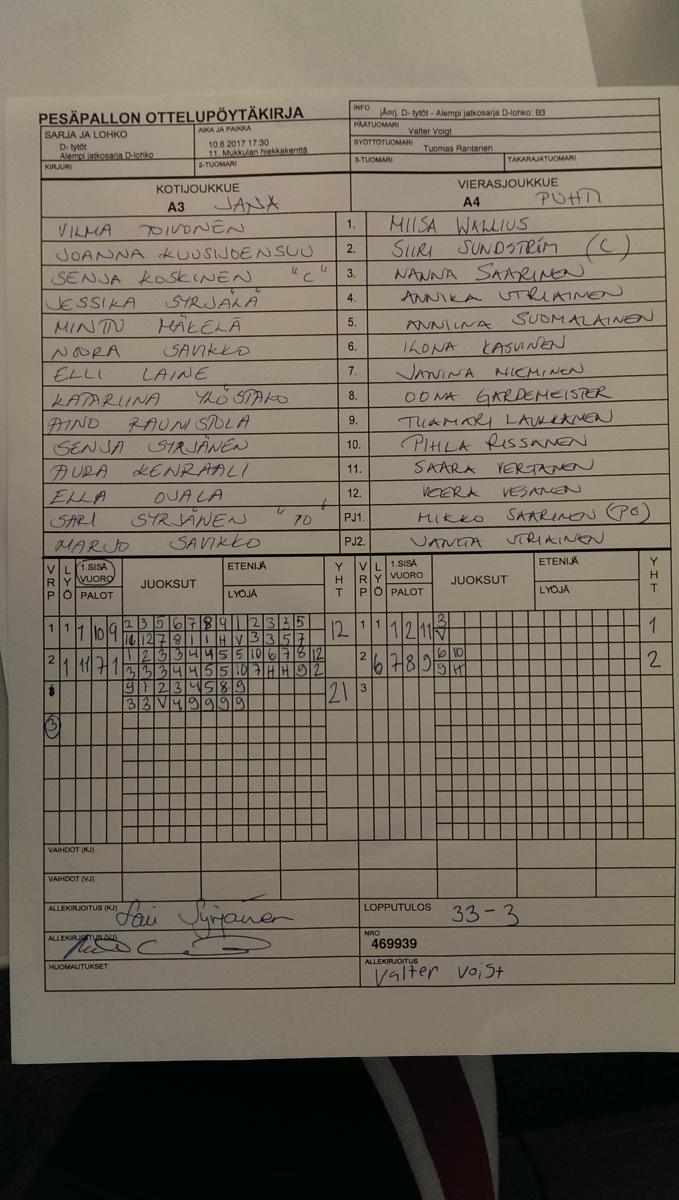 PESÄPALLON OTTELUPÖYTÄKIRJA
INFO jÄorj. D- tytöt - Alempi jatkosarja D-lohko: B3
SARJA JA LOHKO
D- tytöt
Alempi jatkosarja D-lohko
AIKA JA PAIKKA
10.6.2017 17:30
11. Mukkulan hiekkakenttä
PÄÄTUOMARI Valter Voigt
SYÖTTÖTUOMARI Tuomas Rantanen
KIRJURI 2-TUOMARI 3-TUOMARI TAKARAJATUOMARI
KOTIJOUKKUE VIERASJOUKKUE
A3 JANA A4 PUHTI
VILMA TOIVONEN 1. MIISA WALLIUS
JOANNA KUUSIJOENSUU 2. SIIRI SUNDSTRÖM (C)
SENJA KOSKINEN "C" 3. NANNA SAARINEN
JESSIKA SYRJÄLÄ 4. ANNIKA UTRIAINEN
MINTTU MÄKELÄ 5. ANNIINA SUOMALAINEN
NOORA SAVIKKO 6. ILONA KASVINEN
ELLI LAINE 7. JANINA NIEMINEN
KATARIINA YLÖSTALO 8. OONA GARDEMEISTER
AINO RAUNISTOLA 9. TUAMARI LAUKKANEN
SENJA SYRJÄNEN 10. PIHLA RISSANEN
AURA KENRAALI 11. SAARA VERTANEN
ELLA OVALA 12. VEERA VESANEN
SARI SYRJÄNEN "PO" PJ1. MIKKO SAARINEN (PO)
MARJO SAVIKKO PJ2. VANTA UTRIAINEN
VRP LYÖ 1.SISÄ VUORO PALOT JUOKSUT ETENIJÄ LYÖJÄ YHT VRP LYÖ 1.SISÄ VUORO PALOT JUOKSUT ETENIJÄ LYÖJÄ YHT
1 1 1 10 9 2 3 5 6 7 8 9 1 2 3 3 5 12 1 1 1 12 11 3 1
10 12 7 8 1 1 H V 3 3 5 7 V
2 1 11 7 1 1 2 3 3 4 4 5 5 10 6 7 8 12 2 6 7 8 9 6 10 2
3 3 3 4 4 5 5 10 7 H H 9 2 9 H
9 1 2 3 4 5 8 9 21 3
3 3 V 4 9 9 9 9
3
VAIHDOT (KJ)
VAIHDOT (VJ)
ALLEKIRJOITUS (KJ) Sari Syrjänen LOPPUTULOS 33-3
ALLEKIRJOITUS (VJ) NRO 469939
HUOMAUTUKSET ALLEKIRJOITUS Valter Voigt